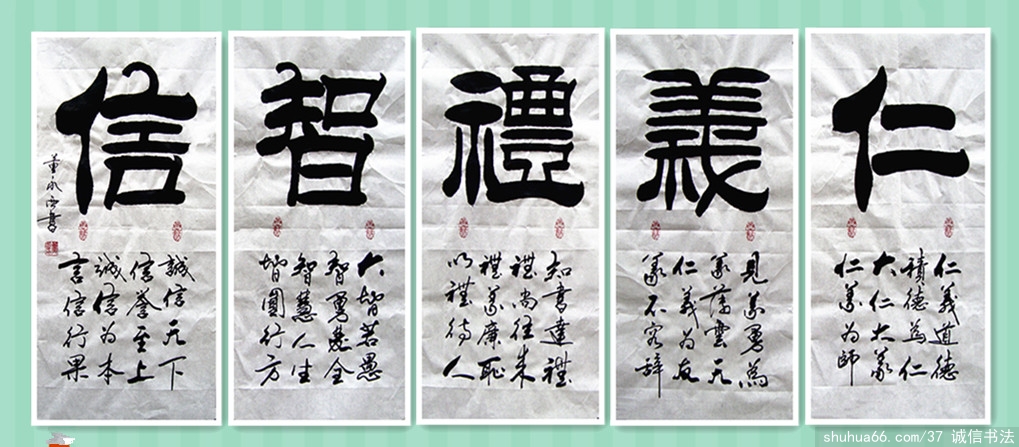 仁
仁義道德
積德為仁
大仁大義
仁義为師
義
見義勇為
義薄雲天
仁義为友
義不容辞
禮
知書達禮
禮尚往来
禮義廉耻
以禮待人
智
大智若愚
智勇雙全
智慧人生
智圓行方
信
誠信天下
信譽至上
誠信为本
言信行果
董永書
shuhua66.com/37 诚信书法